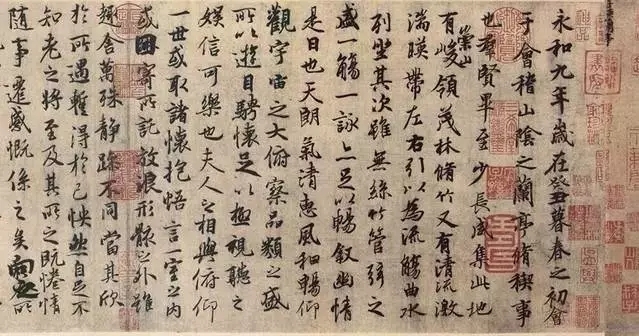 永和九年歲在癸丑暮春之初會
于會稽山陰之蘭亭脩稧事
也羣賢畢至少長咸集此地
有崇山峻領茂林脩竹又有清流激
湍暎帶左右引以為流觴曲水
列坐其次雖無絲竹管弦之
盛一觴一詠亦足以暢叙幽情
是日也天朗氣清惠風和暢仰
觀宇宙之大俯察品類之盛
所以遊目騁懷足以極視聽之
娛信可樂也夫人之相與俯仰
一世或取諸懷抱悟言一室之內
或因寄所託放浪形骸之外雖
趣舍萬殊靜躁不同當其欣
於所遇蹔得於己怏然自足不
知老之將至及其所之既惓情
隨事遷感慨係之矣向之所